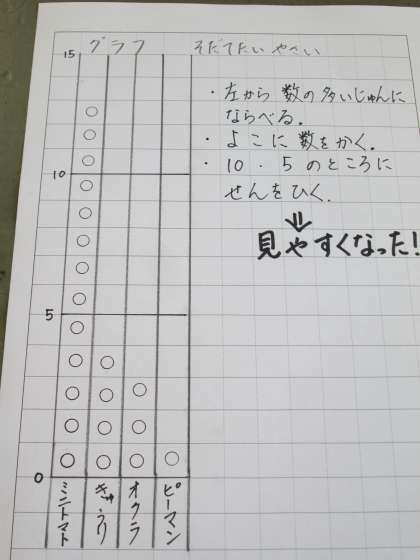 グラフ
そだてたい やさい
15
10
5
0
・左から 数の多いじゅんに
ならべる.
・よこに 数をかく.
・10 . 5 のところに
せんをひく.
⇓
見やすくなった!
ミニトマト
きゅうり
オクラ
ピーマン